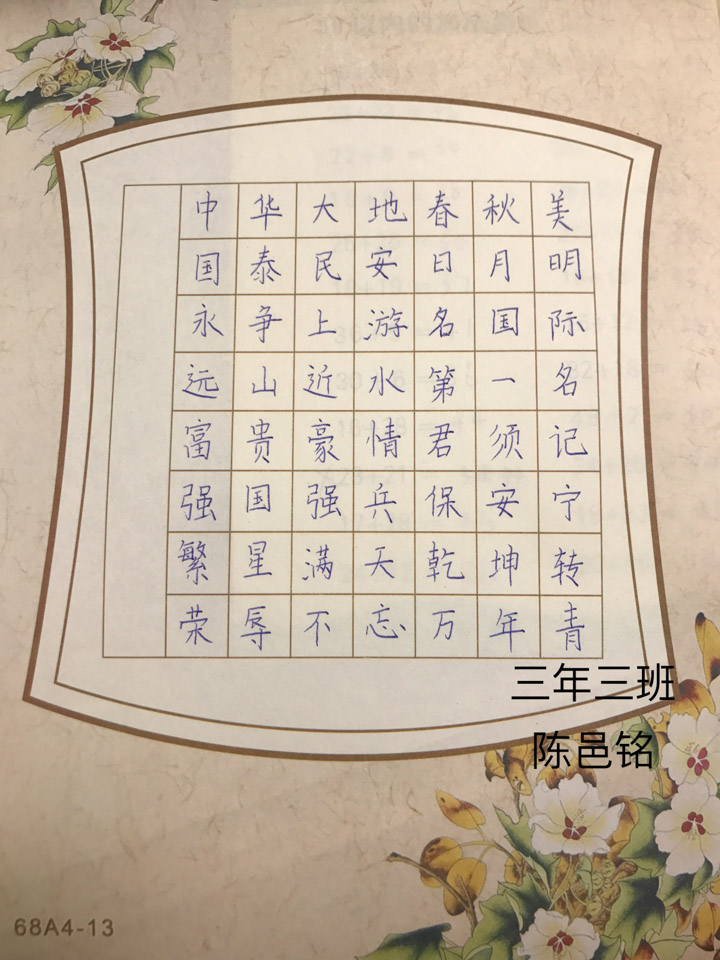 中华大地春秋美
国泰民安日月明
永争上游名国际
远山近水第一名
富贵豪情君须记
强国强兵保安宁
繁星满天乾坤转
荣辱不忘万年青
三年三班
陈邑铭
68A4-13